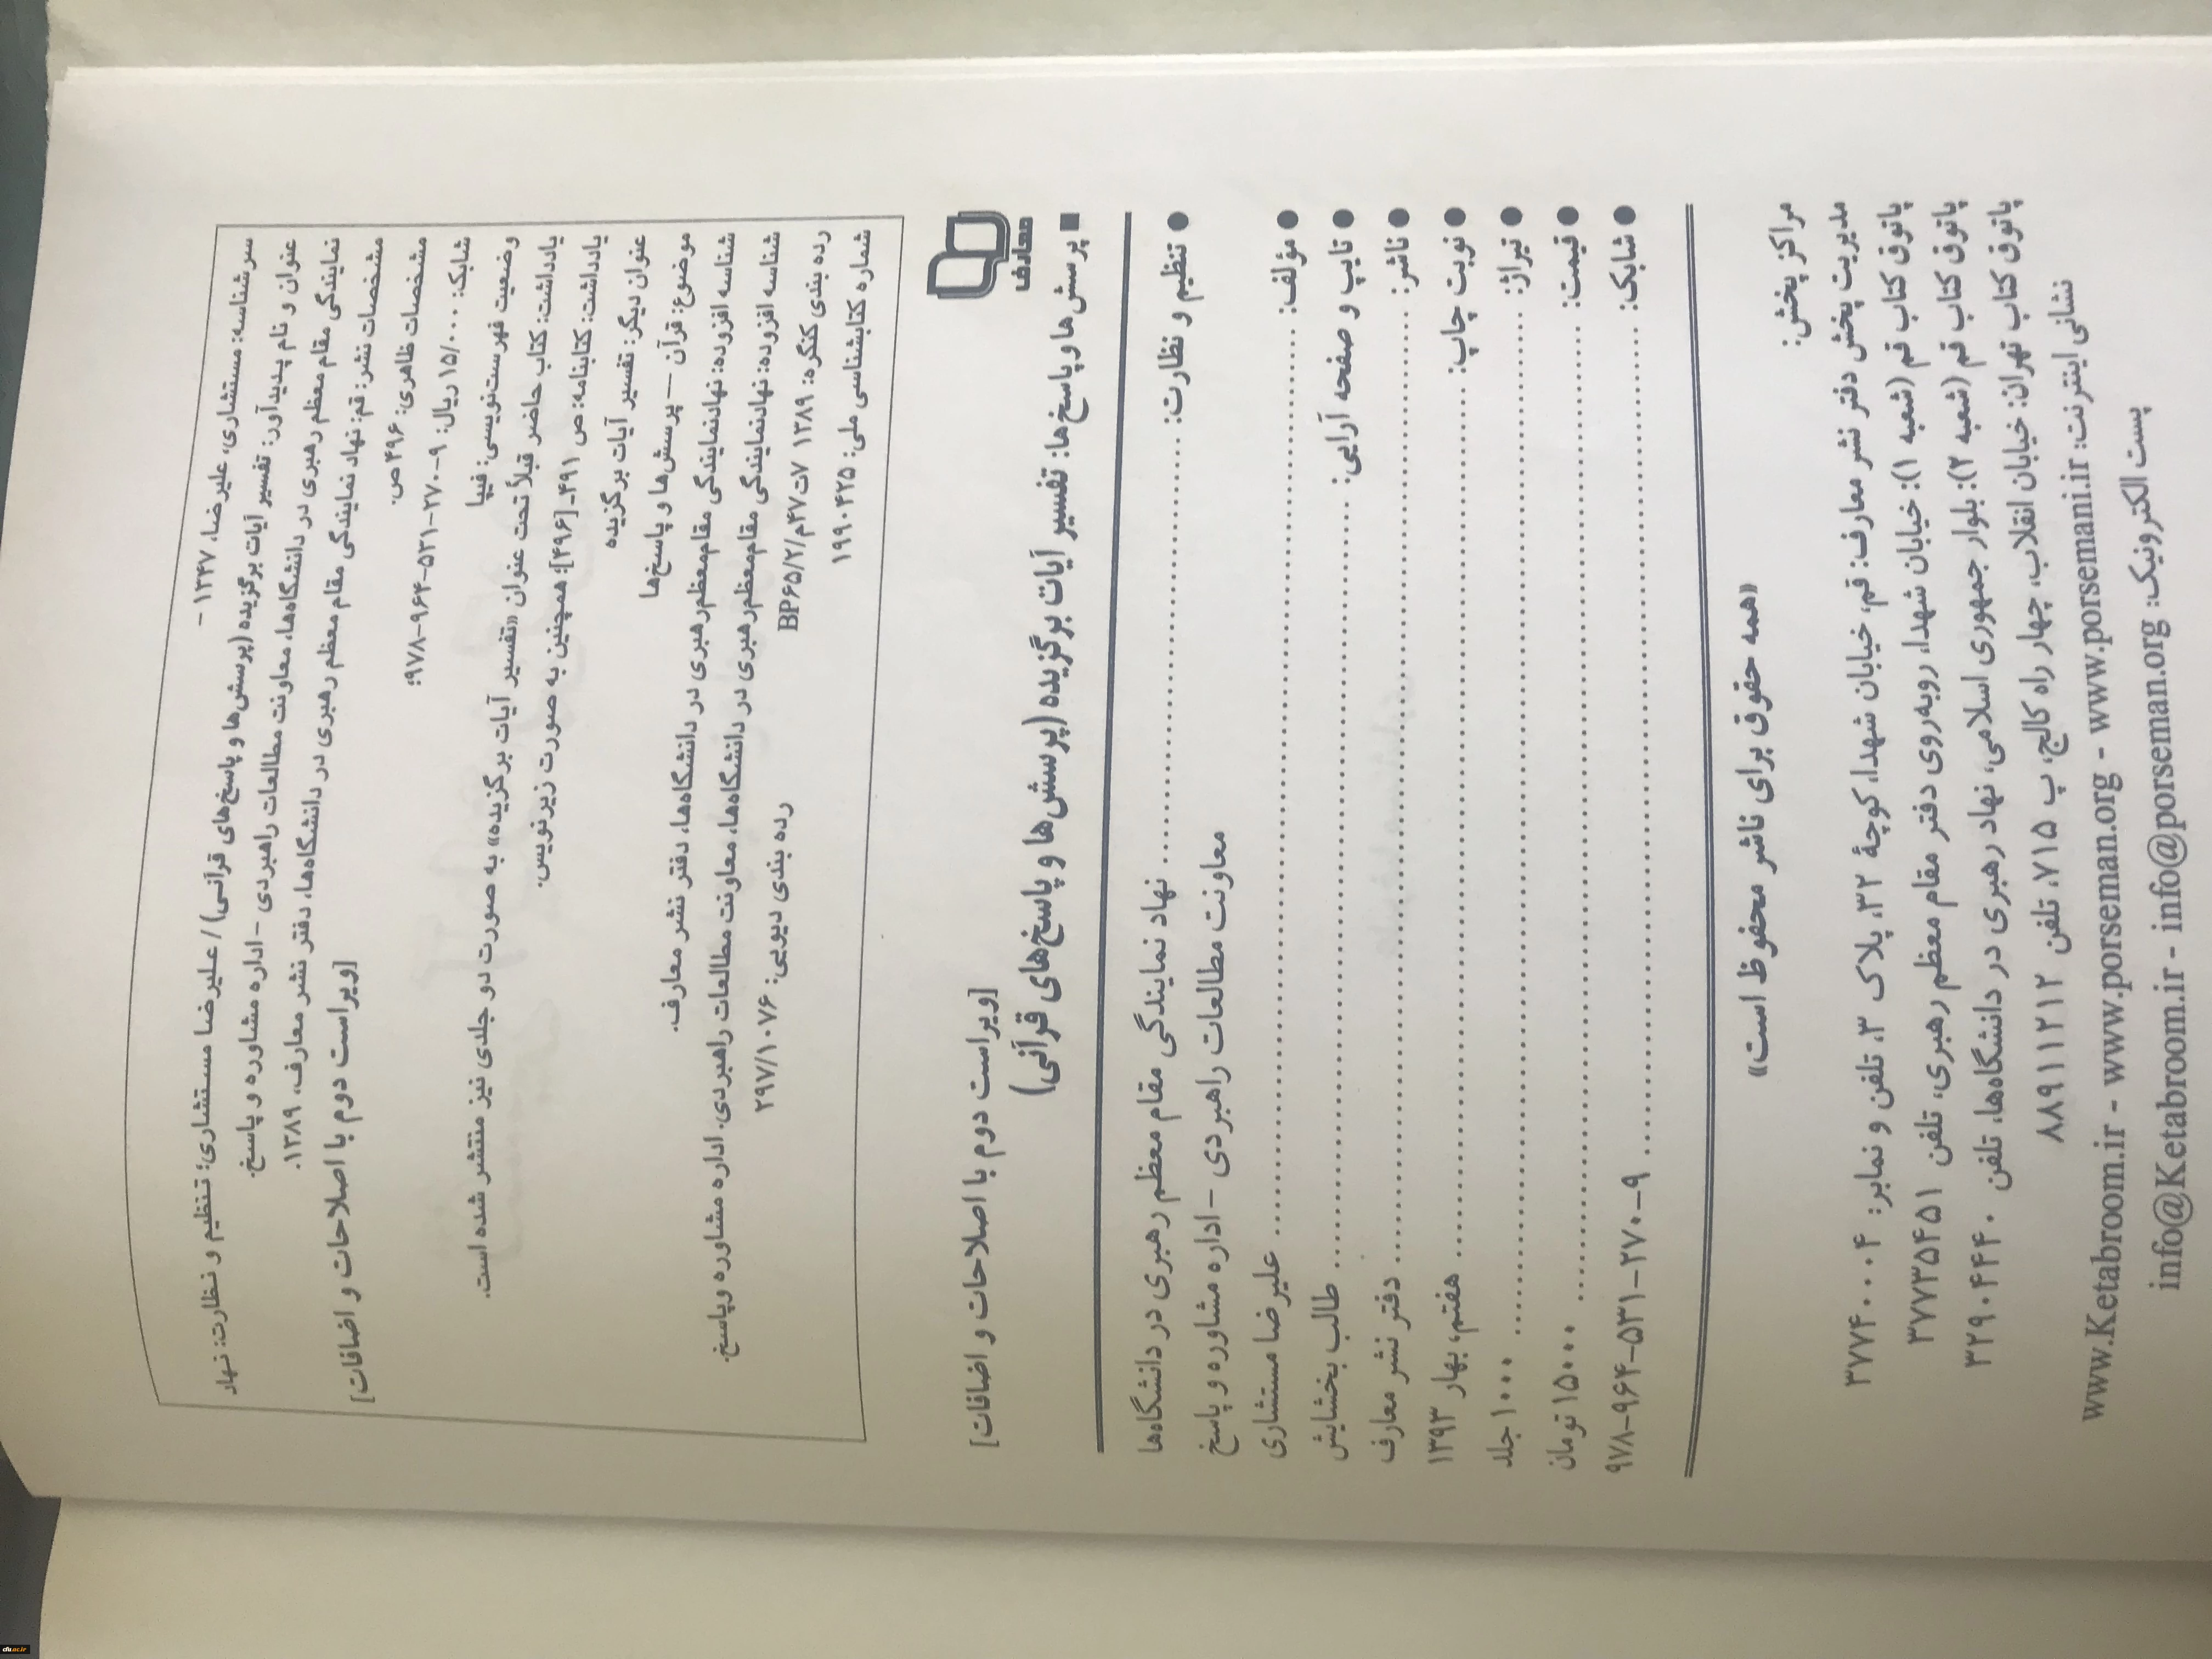 سرشناسه: مستشاری، علیرضا، ۱۳۴۷ -
عنوان و نام پدیدآور: تفسیر آیات برگزیده (پرسش‌ها و پاسخ‌های قرآنی) / علیرضا مستشاری؛ تنظیم و نظارت: نهاد
نمایندگی مقام معظم رهبری در دانشگاه‌ها، معاونت مطالعات راهبردی - اداره مشاوره و پاسخ.
مشخصات نشر: قم: نهاد نمایندگی مقام معظم رهبری در دانشگاه‌ها، دفتر نشر معارف، ۱۳۸۹.
مشخصات ظاهری: ۴۹۶ ص. [ویراست دوم با اصلاحات و اضافات]
شابک: ۱۵/۰۰۰ ریال: ۹-۲۷۰-۵۳۱-۹۶۴-۹۷۸؛
وضعیت فهرست‌نویسی: فیپا
یادداشت: کتاب حاضر قبلاً تحت عنوان «تفسیر آیات برگزیده» به صورت دو جلدی نیز منتشر شده است.
یادداشت: کتابنامه: ص ۴۹۱ـ[۴۹۶]؛ همچنین به صورت زیرنویس.
عنوان دیگر: تفسیر آیات برگزیده
موضوع: قرآن — پرسش‌ها و پاسخ‌ها
شناسه افزوده: نهادنمایندگی مقام‌معظم‌رهبری در دانشگاه‌ها، دفتر نشر معارف.
شناسه افزوده: نهادنمایندگی مقام‌معظم‌رهبری در دانشگاه‌ها، معاونت مطالعات راهبردی. اداره مشاوره وپاسخ.
رده بندی کنگره: ۱۳۸۹ ۷ت۴۷م/۲/BP۶۵ رده بندی دیویی: ۲۹۷/۱۰۷۶
شماره کتابشناسی ملی: ۱۹۹۰۴۲۵
معارف
■ پرسش‌ها و پاسخ‌ها: تفسیر آیات برگزیده (پرسش‌ها و پاسخ‌های قرآنی)
[ویراست دوم با اصلاحات و اضافات]
● تنظیم و نظارت: نهاد نمایندگی مقام معظم رهبری در دانشگاه‌ها
معاونت مطالعات راهبردی - اداره مشاوره و پاسخ
● مؤلف: علیرضا مستشاری
● تایپ و صفحه آرایی: طالب بخشایش
● ناشر: دفتر نشر معارف
● نوبت چاپ: هفتم، بهار ۱۳۹۳
● تیراژ: ۱۰۰۰ جلد
● قیمت: ۱۵۰۰۰ تومان
● شابک: ۹-۲۷۰-۵۳۱-۹۶۴-۹۷۸
«همه حقوق برای ناشر محفوظ است»
مراکز پخش:
مدیریت پخش دفتر نشر معارف: قم، خیابان شهدا، کوچهٔ ۳۲، پلاک ۳، تلفن و نمابر: ۳۷۷۴۰۰۰۴
پاتوق کتاب قم (شعبه ۱): خیابان شهدا، روبه‌روی دفتر مقام معظم رهبری، تلفن ۳۷۷۳۵۴۵۱
پاتوق کتاب قم (شعبه ۲): بلوار جمهوری اسلامی، نهاد رهبری در دانشگاه‌ها، تلفن ۳۲۹۰۴۴۴۰
پاتوق کتاب تهران: خیابان انقلاب، چهار راه کالج، پ ۷۱۵، تلفن ۸۸۹۱۱۲۱۲
نشانی اینترنت: www.Ketabroom.ir - www.porseman.org - www.porsemani.ir
پست الکترونیک: info@Ketabroom.ir - info@porseman.org
cfu.ac.ir